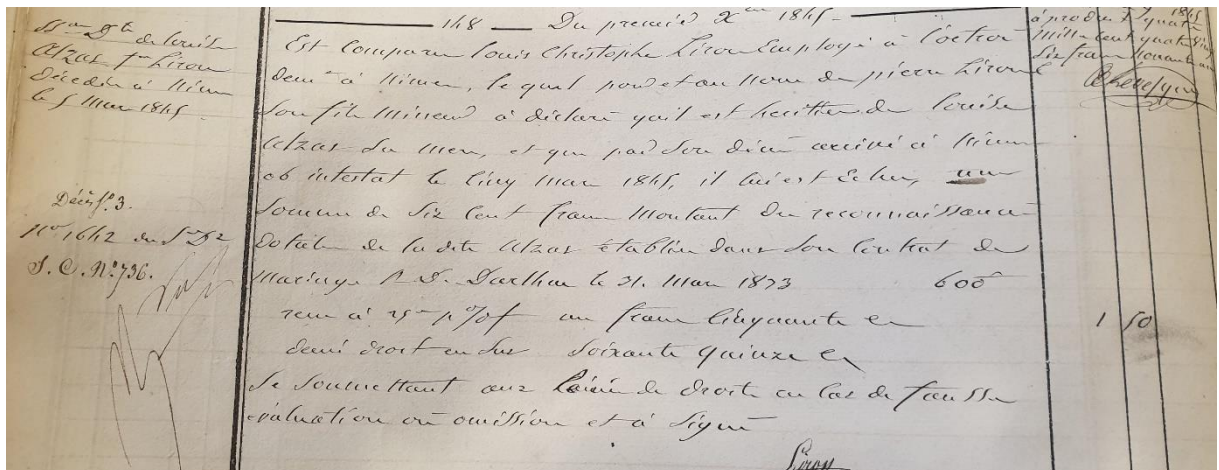 148 — Du premier Xbre 1845 —
Son Dte de louise
Alzas fe Liron
Décédée à Nimes
le 5 Mars 1845.
Décès fo. 3.
No 1642 du
S. C. No. 736.
Est comparu Louis Christophe Liron Employé à l'octroi
demt à Nimes, le quel pour et au Nom de pierre Liron
Son fils Mineur à déclaré qu'il est heritier de louise
Alzas Sa Mere, et que par Son décès arrivé à Nimes
ab intestat le Cinq Mars 1845, il lui est Echu, une
Somme de Six Cent francs Montant du reconnaissance
Dotales de la dite Alzas établie dans Son Contrat de
Mariage le 31. Mars 600
revu à 25c p % f un franc Cinquante c
demi droit en Sus Soixante quinze c
Se Soumettant aux Peines de droit en Cas de fausse
évaluation ou omission et à Signé
Liron
1845
quatre
Mille cent quatre
Six francs Nonante
1 50